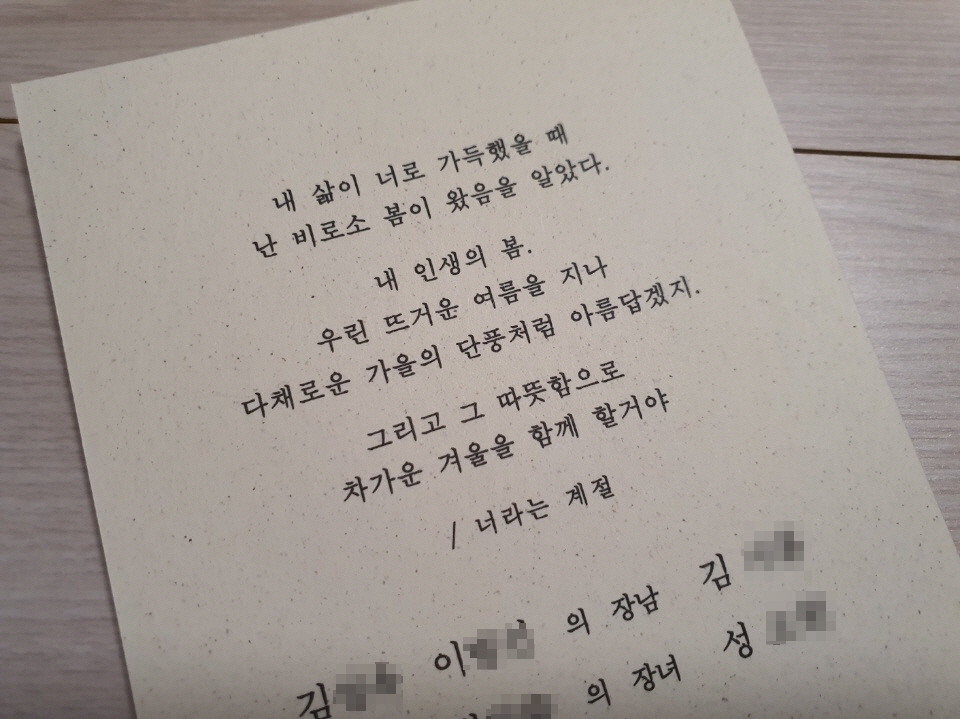 내 삶이 너로 가득했을 때
난 비로소 봄이 왔음을 알았다.
내 인생의 봄.
우린 뜨거운 여름을 지나
다채로운 가을의 단풍처럼 아름답겠지.
그리고 그 따뜻함으로
차가운 겨울을 함께 할거야
/ 너라는 계절
김 이 의 장남 김
의 장녀 성